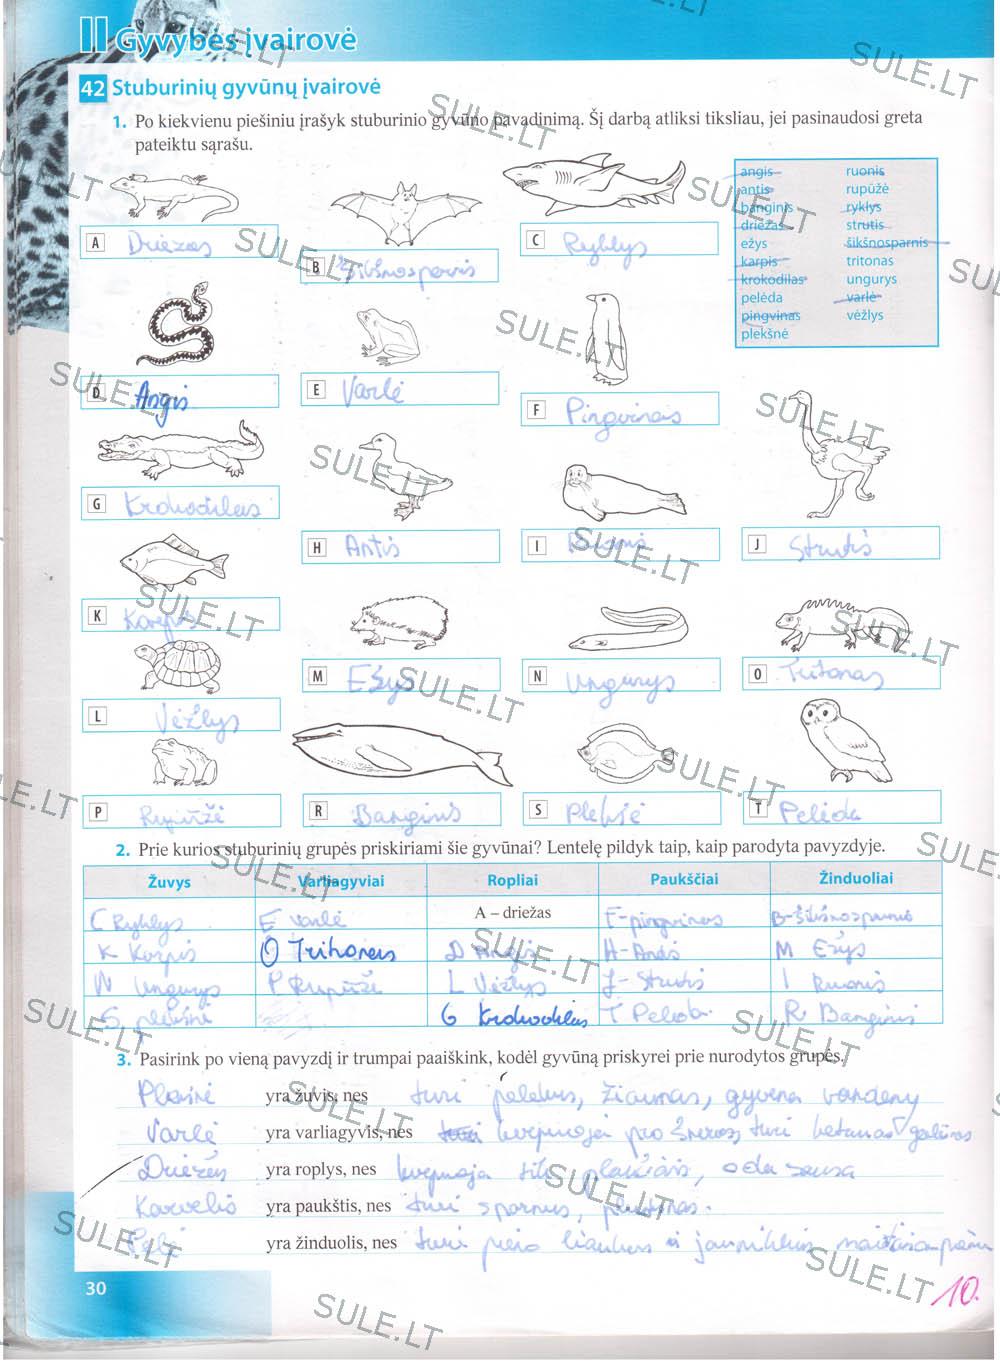 II Gyvybės įvairovė
42 Stuburinių gyvūnų įvairovė
1. Po kiekvienu piešiniu įrašyk stuburinio gyvūno pavadinimą. Šį darbą atliksi tiksliau, jei pasinaudosi greta
pateiktu sąrašu.
angis ruonis
antis rupūžė
banginis ryklys
driežas strutis
ežys šikšnosparnis
karpis tritonas
krokodilas ungurys
pelėda varlė
pingvinas vėžlys
plekšnė
A Driežas
B Šikšnosparnis
C Ryklys
D Angis
E Varlė
F Pingvinas
G Krokodilas
H Antis
I Ruonis
J Strutis
K Karpis
M Ežys
N Ungurys
O Tritonas
L Vėžlys
P Rupūžė
R Banginis
S Plekšė
T Pelėda
2. Prie kurios stuburinių grupės priskiriami šie gyvūnai? Lentelę pildyk taip, kaip parodyta pavyzdyje.
Žuvys Varliagyviai Ropliai Paukščiai Žinduoliai
C Ryklys E varlė A – driežas F-pingvinas B-šikšnosparnis
K Karpis O Tritonas D Angis H-Antis M Ežys
N Ungurys P Rupūžė L Vėžlys J- Strutis I Ruonis
S plekšnė G Krokodilas T Pelėda R Banginis
3. Pasirink po vieną pavyzdį ir trumpai paaiškink, kodėl gyvūną priskyrei prie nurodytos grupės.
yra žuvis, nes turi pelekus, žiaunas, gyvena vandeny
Varlė yra varliagyvis, nes kvėpuoja pro turi keturias galūnes
Driežas yra roplys, nes kvėpuoja tik plaučiais, oda sausa
Karvelis yra paukštis, nes turi sparnus, plunksnas.
yra žinduolis, nes turi pieno liaukas ir jauniklius maitina pienu
30
10.
SULE.LT